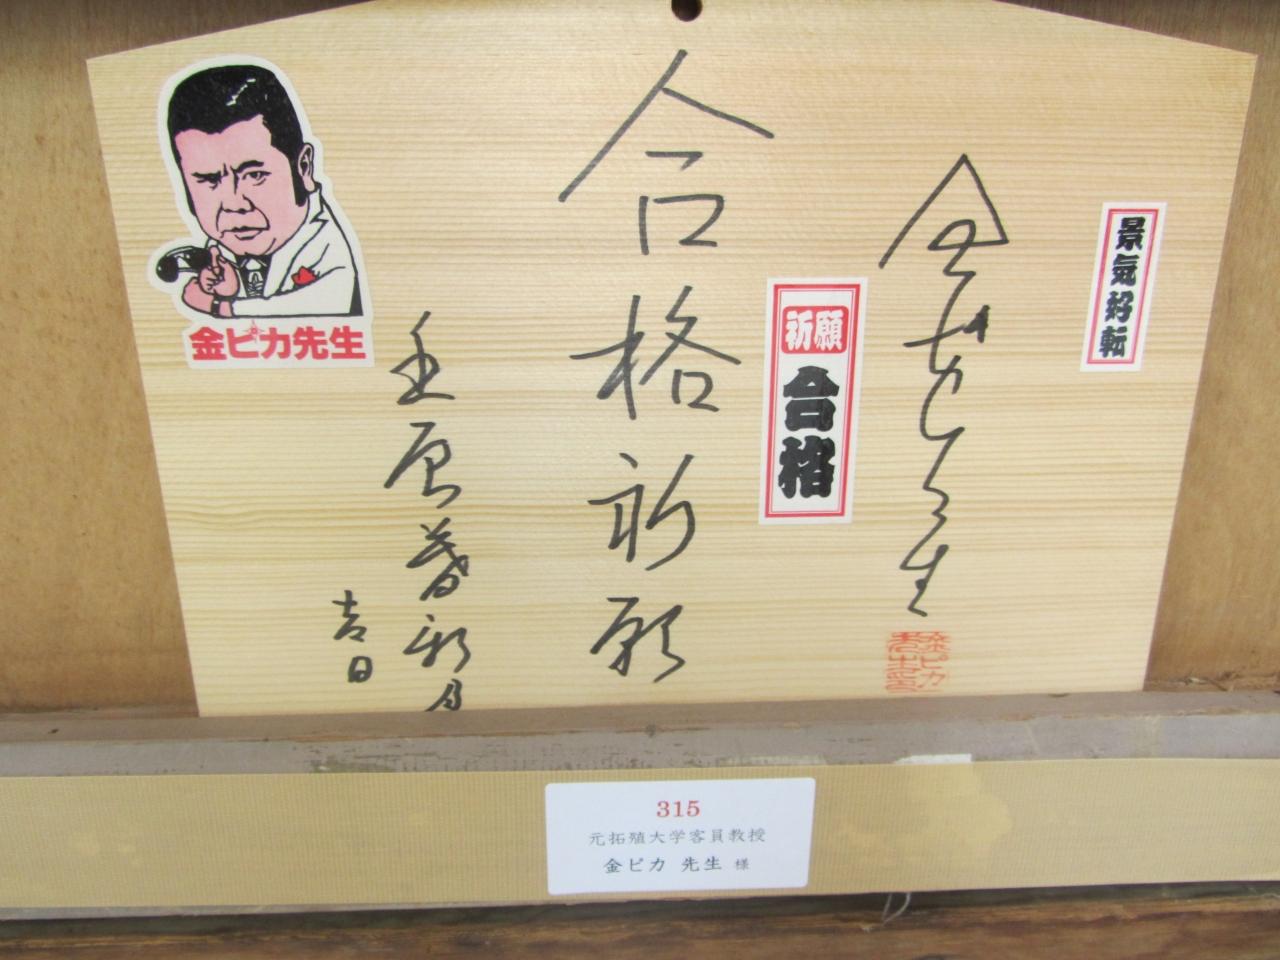 景気好転
金ピカ先生
金ピカ先生印
祈願
合格
合格祈願
吉日
金ピカ先生
315
元拓殖大学客員教授
金ピカ 先生 様